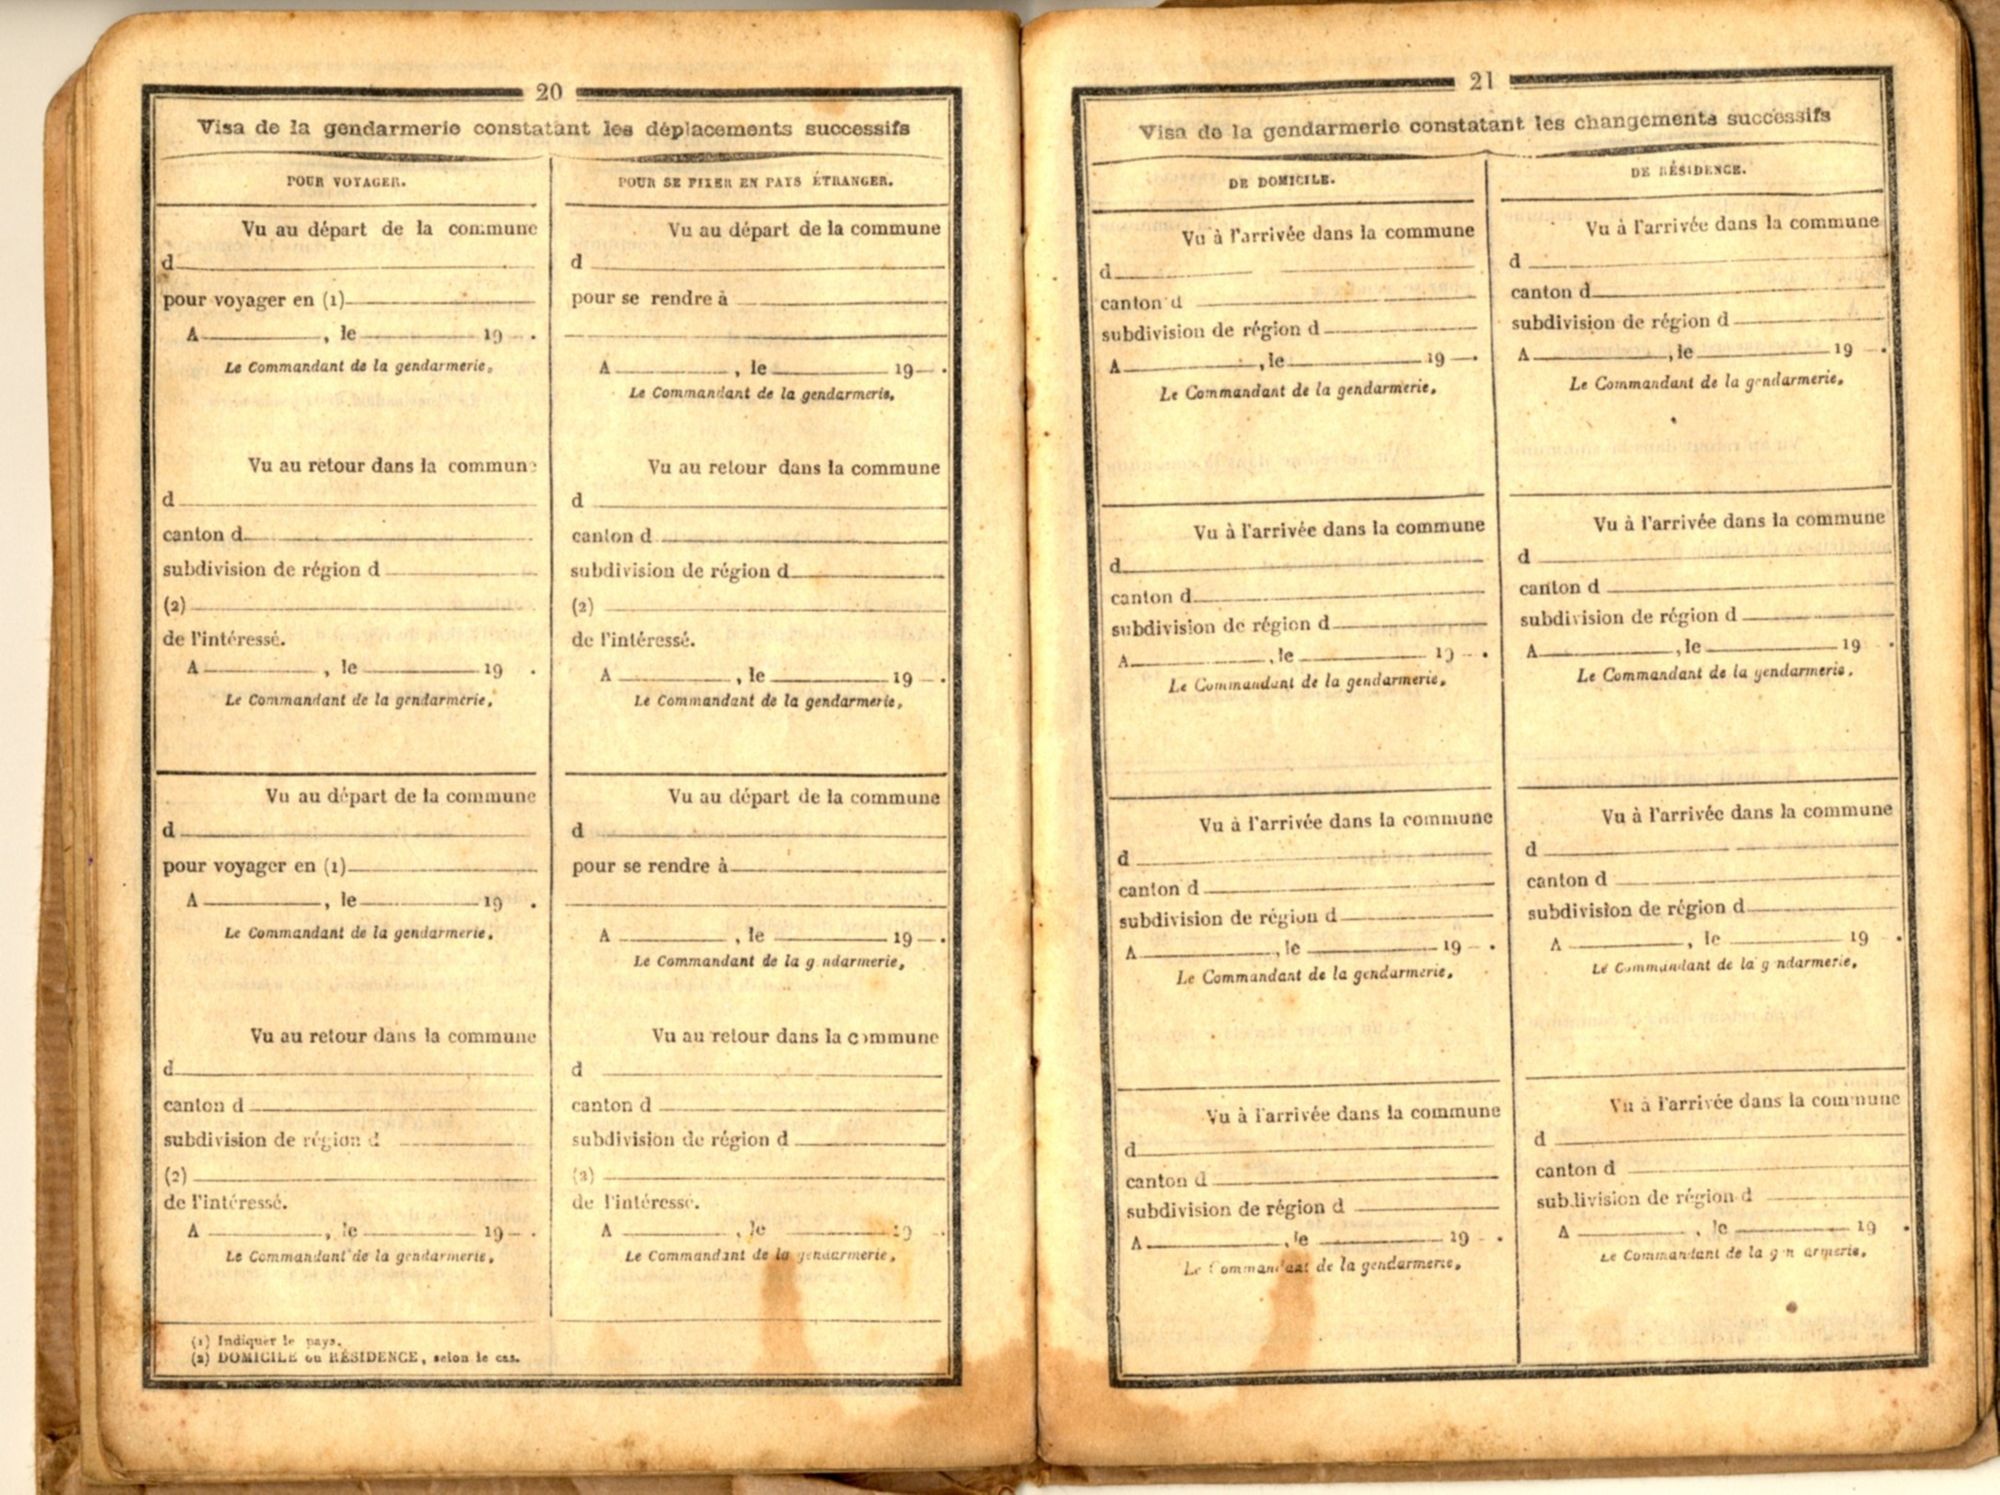 20
Visa de la gendarmerie constatant les déplacements successifs
POUR VOYAGER.
Vu au départ de la commune
d
pour voyager en (1)
A , le 19 .
Le Commandant de la gendarmerie,
Vu au retour dans la commune
d
canton d
subdivision de région d
(2)
de l'intéressé.
A , le 19 .
Le Commandant de la gendarmerie,
Vu au départ de la commune
d
pour voyager en (1)
A , le 19 .
Le Commandant de la gendarmerie,
Vu au retour dans la commune
d
canton d
subdivision de région d
(2)
de l'intéressé.
A , le 19 .
Le Commandant de la gendarmerie,
(1) Indiquer le pays.
(2) DOMICILE ou RÉSIDENCE, selon le cas.
POUR SE FIXER EN PAYS ÉTRANGER.
Vu au départ de la commune
d
pour se rendre à
A , le 19 .
Le Commandant de la gendarmerie,
Vu au retour dans la commune
d
canton d
subdivision de région d
(2)
de l'intéressé.
A , le 19 .
Le Commandant de la gendarmerie,
Vu au départ de la commune
d
pour se rendre à
A , le 19 .
Le Commandant de la gendarmerie,
Vu au retour dans la commune
d
canton d
subdivision de région d
(2)
de l'intéressé.
A , le 19 .
Le Commandant de la gendarmerie,
21
Visa de la gendarmerie constatant les changements successifs
DE DOMICILE.
Vu à l'arrivée dans la commune
d
canton d
subdivision de région d
A , le 19 .
Le Commandant de la gendarmerie,
Vu à l'arrivée dans la commune
d
canton d
subdivision de région d
A , le 19 .
Le Commandant de la gendarmerie,
Vu à l'arrivée dans la commune
d
canton d
subdivision de région d
A , le 19 .
Le Commandant de la gendarmerie,
Vu à l'arrivée dans la commune
d
canton d
subdivision de région d
A , le 19 .
Le Commandant de la gendarmerie,
DE RÉSIDENCE.
Vu à l'arrivée dans la commune
d
canton d
subdivision de région d
A , le 19 .
Le Commandant de la gendarmerie,
Vu à l'arrivée dans la commune
d
canton d
subdivision de région d
A , le 19 .
Le Commandant de la gendarmerie,
Vu à l'arrivée dans la commune
d
canton d
subdivision de région d
A , le 19 .
Le Commandant de la gendarmerie,
Vu à l'arrivée dans la commune
d
canton d
subdivision de région d
A , le 19 .
Le Commandant de la gendarmerie,